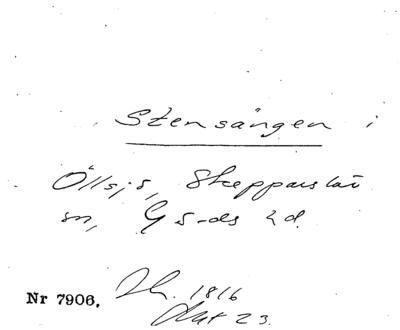 Stensången i
Öllsjö, Skepparslöv
sn, G s-ds hd.
Nr 7906. 1816
23.